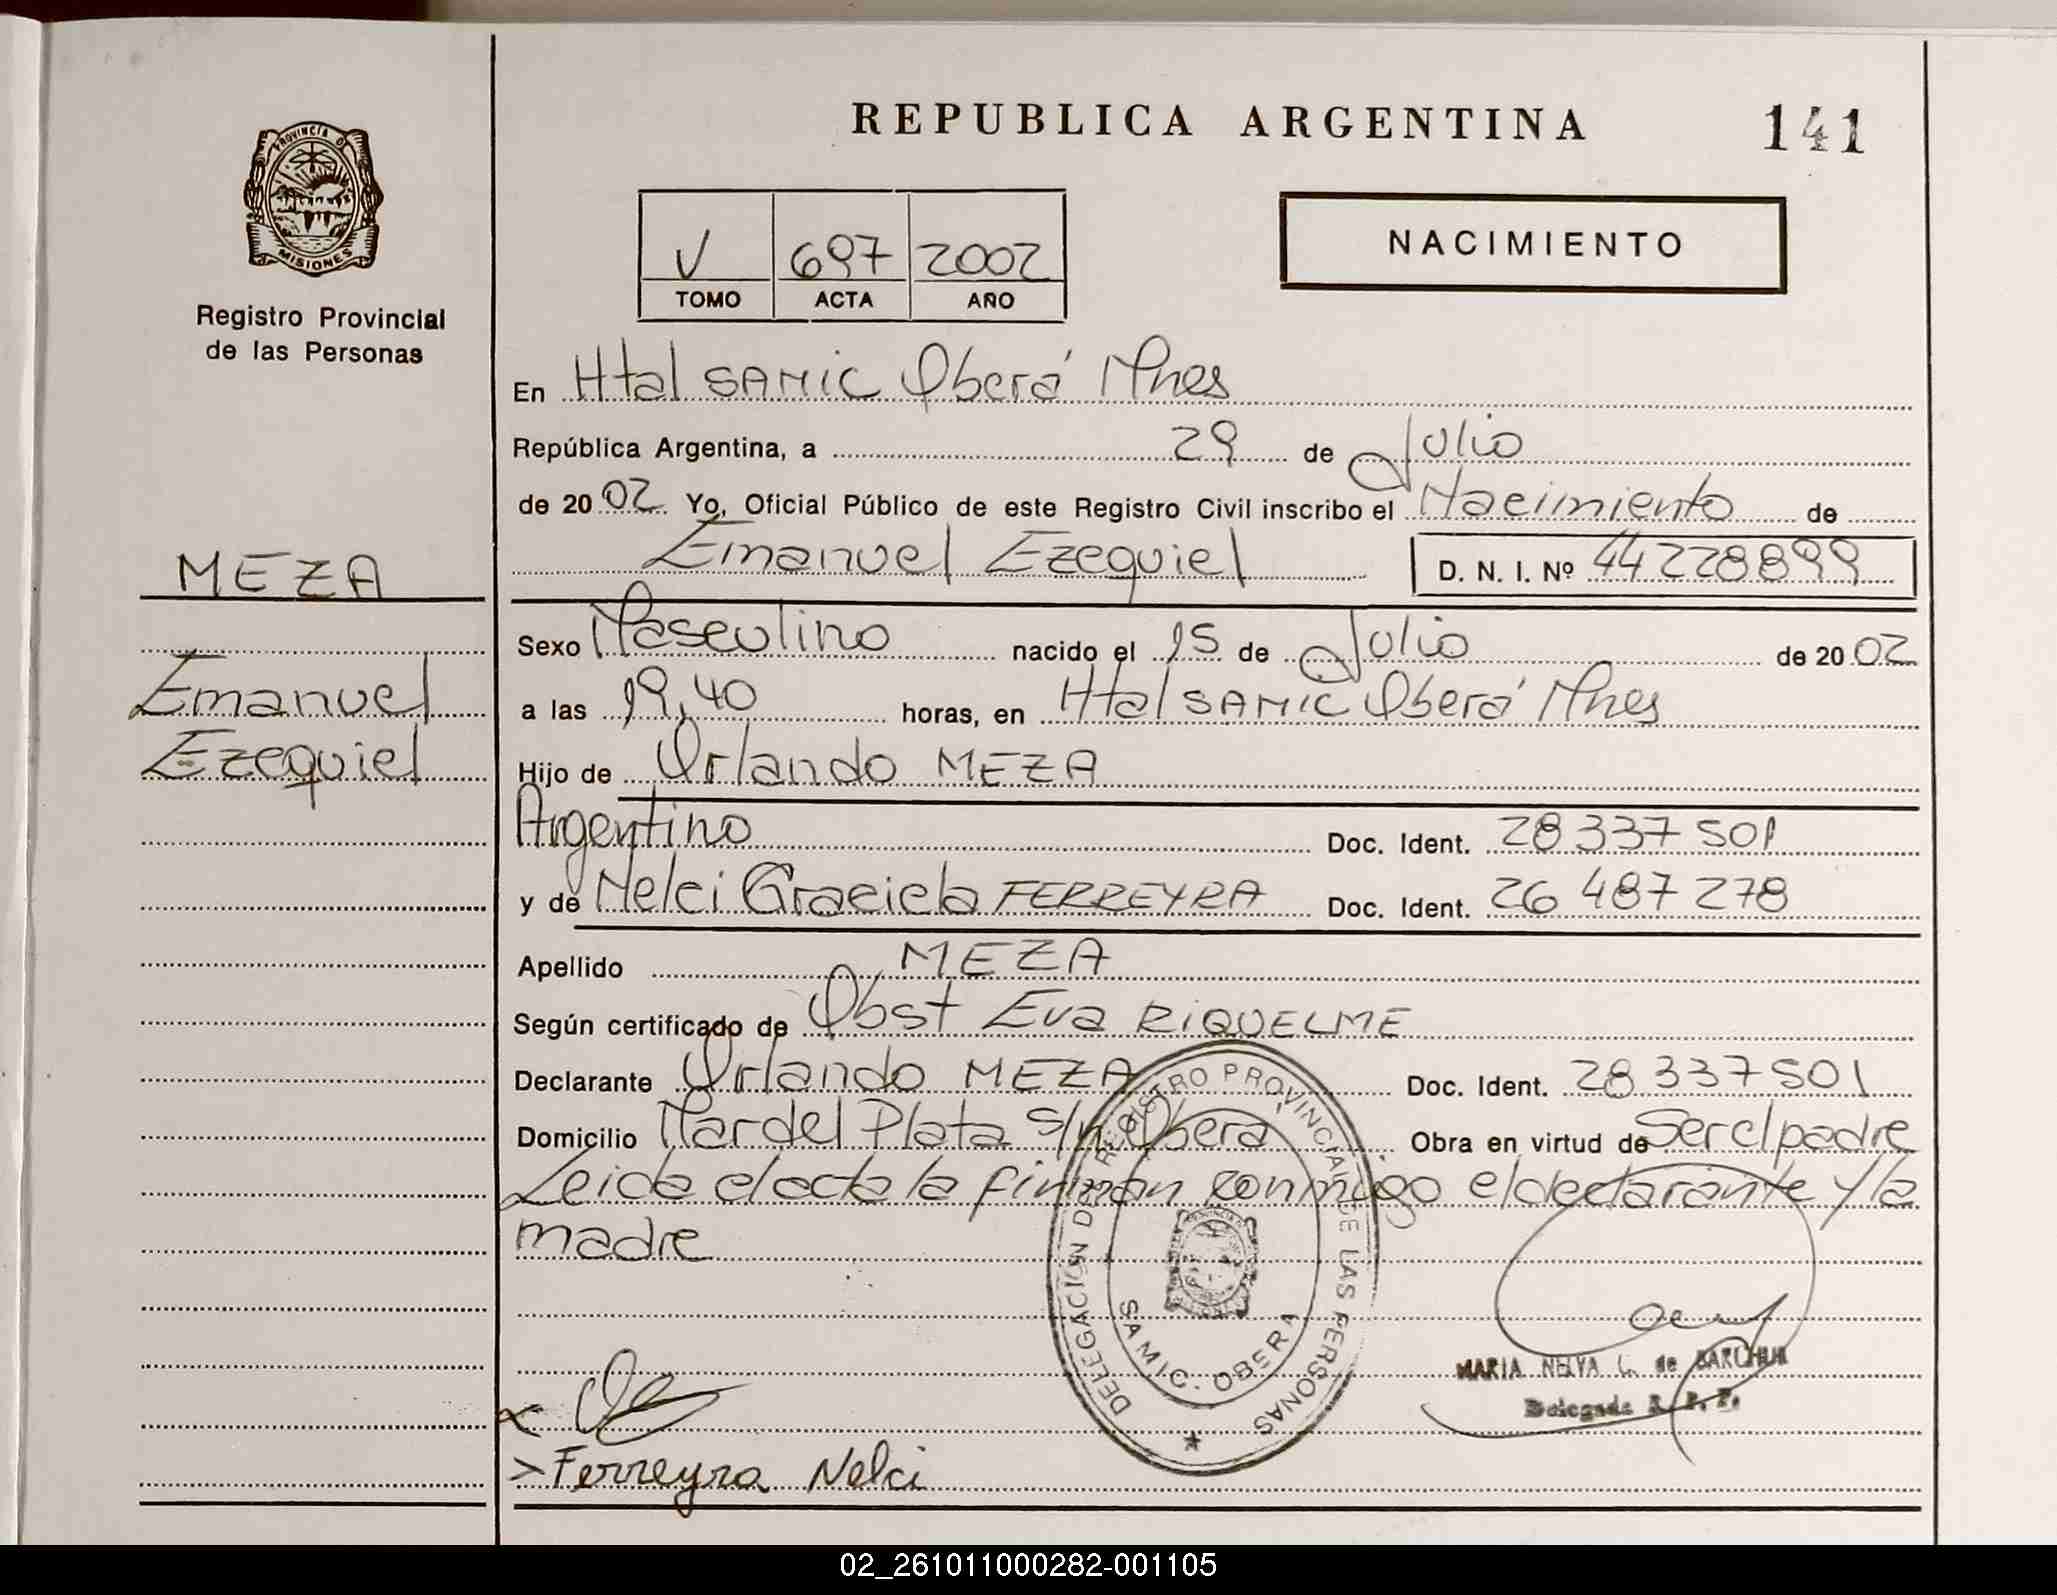 REPUBLICA ARGENTINA
141
PROVINCIA DE
MISIONES
Registro Provincial
de las Personas
V 697 2002
TOMO ACTA AÑO
NACIMIENTO
En Htal SAMIC Oberá Mnes
República Argentina, a 29 de Julio
de 2002 Yo, Oficial Público de este Registro Civil inscribo el Nacimiento de
Emanuel Ezequiel D. N. I. Nº 44228899
MEZA
Emanuel
Ezequiel
Sexo Masculino nacido el 15 de Julio de 2002
a las 19,40 horas, en Htal SAMIC Oberá Mnes
Hijo de Orlando MEZA
Argentino Doc. Ident. 28 337 501
y de Nelci Graciela FERREYRA Doc. Ident. 26 487 278
Apellido MEZA
Según certificado de Obst Eva RIQUELME
Declarante Orlando MEZA Doc. Ident. 28 337 501
Domicilio Mar del Plata s/n Oberá Obra en virtud de Ser el padre
Leida el acta la firman conmigo el declarante y la
madre
DELEGACION DEL REGISTRO PROVINCIAL DE LAS PERSONAS
SAMIC. OBERA
MARIA NELVA C. de
Delegada R. P. P.
Ferreyra Nelci
02_261011000282-001105